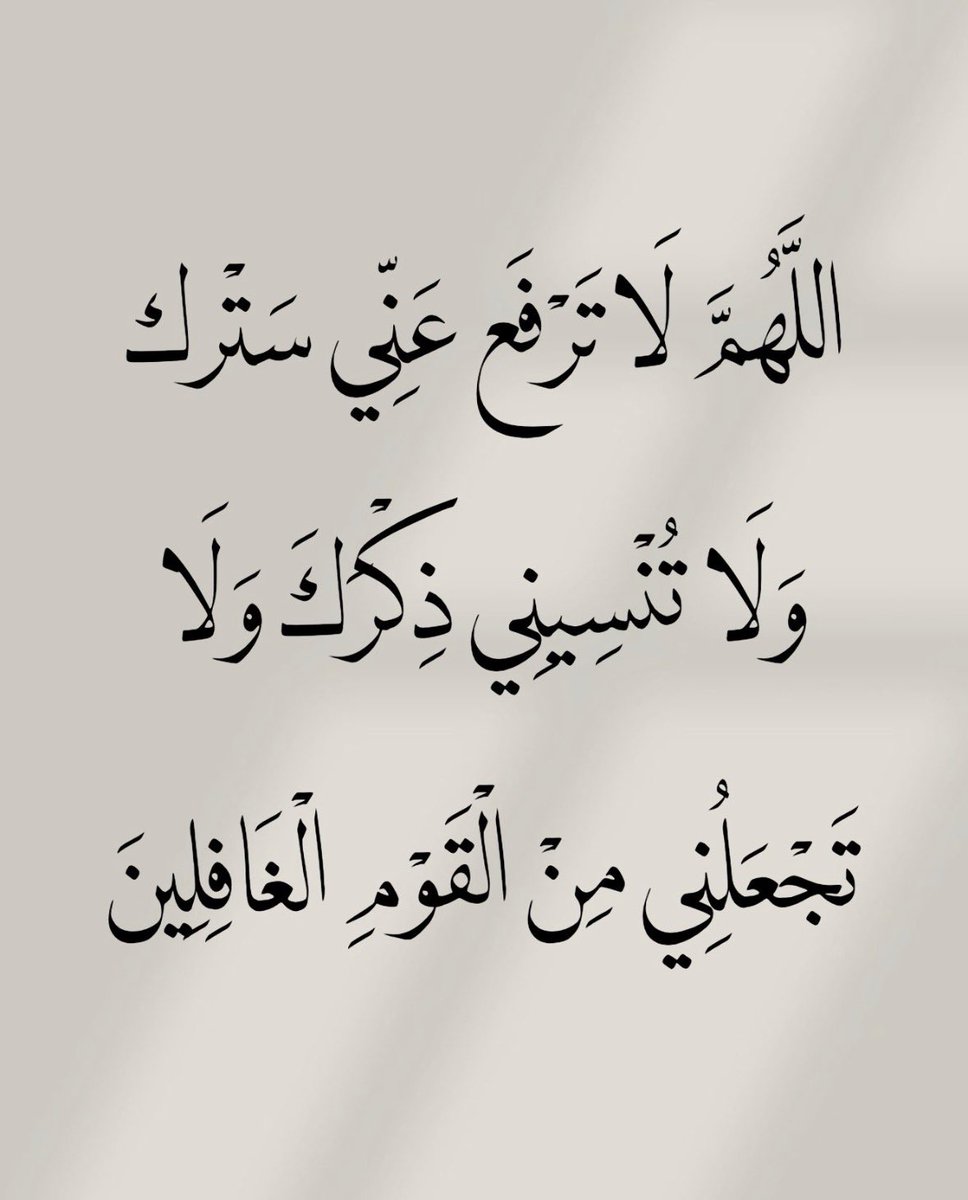 اللَّهُمَّ لَا تَرْفَع عَنِّي سَتْرك
وَلَا تُنْسِينِي ذِكْرَكَ وَلَا
تَجْعَلُنِي مِنْ الْقَوْمِ الْغَافِلِينَ